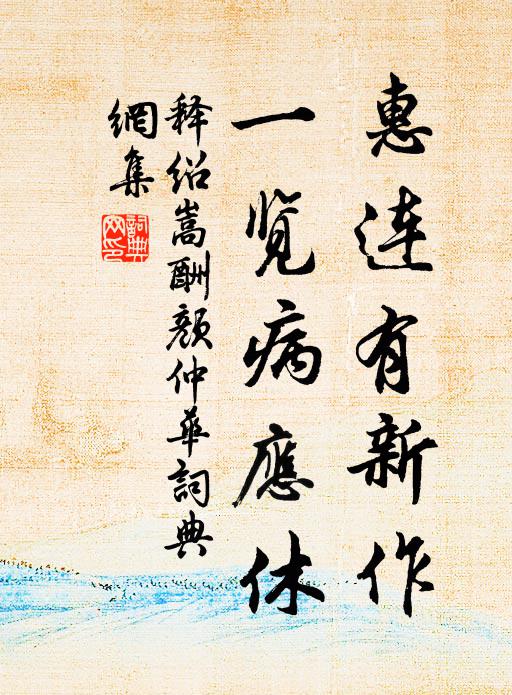 惠连有新作
一览病應休
释绍嵩酬颜仲華詞典
網集
詞典网印